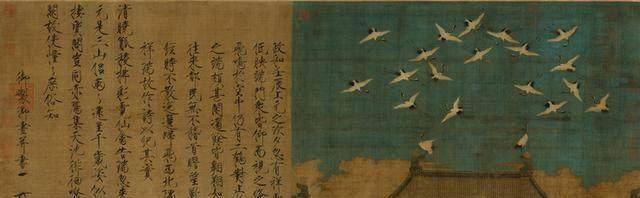 政和壬辰上元之次夕忽有祥
低映端門眾皆仰而視之倏
飛鳴於空中仍有二鶴對止
之端頗甚閒適餘皆翱翔如
往來都民無不稽首瞻望歎
經時不散迤邐歸飛西北隅
祥瑞故作詩以紀其實
清曉觚稜拂彩霓仙禽告瑞忽來
元是三山侶兩兩還呈千歲姿似
棲寶閣豈同赤雁集天池徘徊嘹
闕故使憧憧庶俗知
御製御畫并書